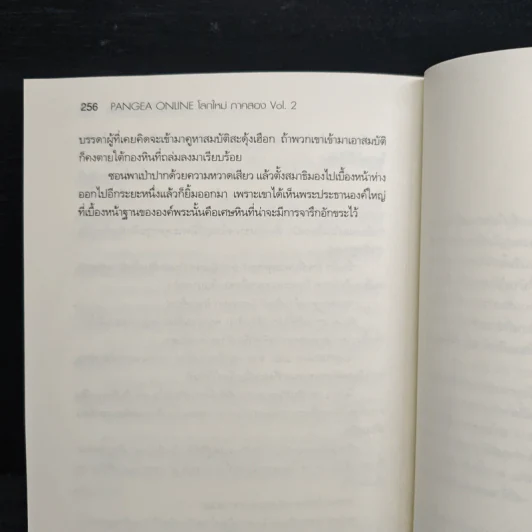 256 PANGEA ONLINE โลกใหม่ ภาคสอง Vol. 2
บรรดาผู้ที่เคยคิดจะเข้ามาคูหาสมบัติสะดุ้งเฮือก ถ้าพวกเขาเข้ามาเอาสมบัติ
ก็คงตายใต้กองหินที่ถล่มลงมาเรียบร้อย
ซอนพาเป่าปากด้วยความหวาดเสียว แล้วตั้งสมาธิมองไปเบื้องหน้าห่าง
ออกไปอีกระยะหนึ่งแล้วก็ยิ้มออกมา เพราะเขาได้เห็นพระประธานองค์ใหญ่
ที่เบื้องหน้าฐานขององค์พระนั้นคือเศษหินที่น่าจะมีการจารึกอักขระไว้